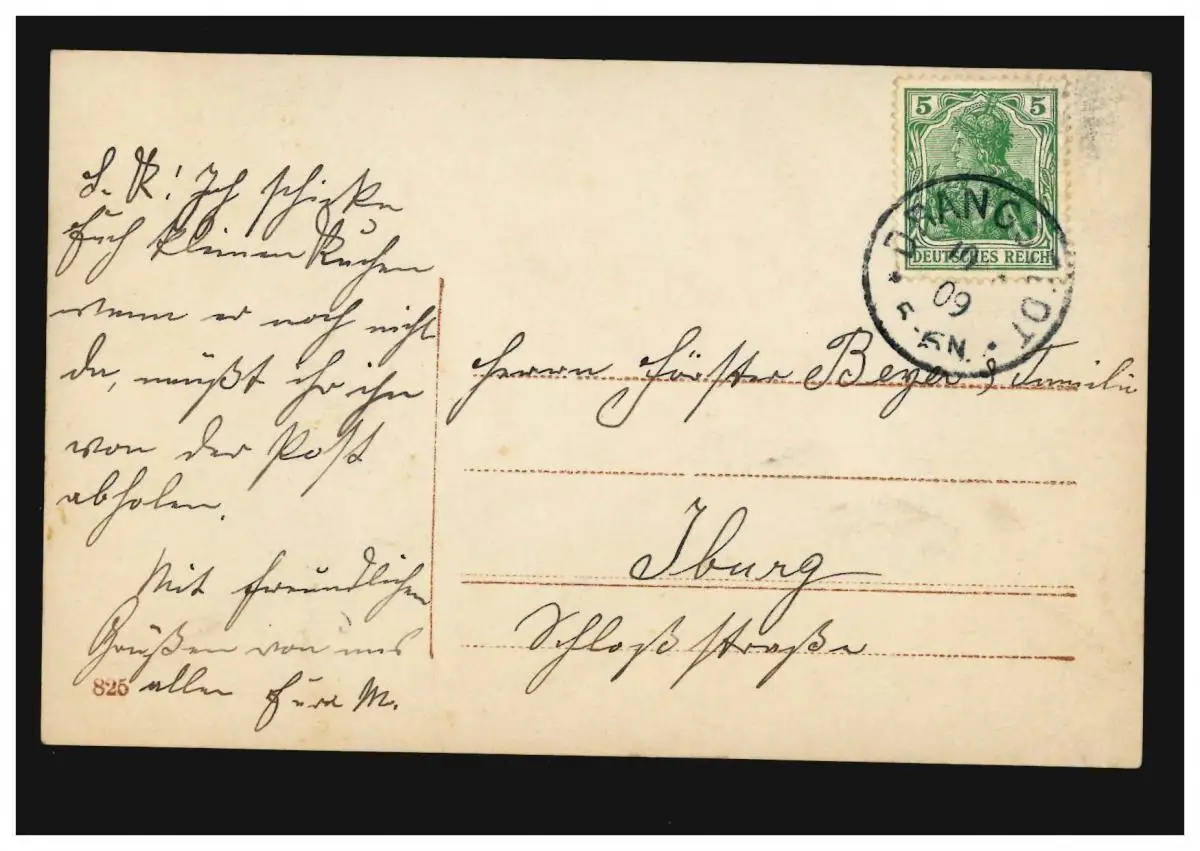 L. K! Ich schicke
Euch kleinen Kuchen
wenn er noch nicht
da, müßt ihr ihn
von der Post
abholen.
Mit freundlichen
Grüßen von uns
allen Eure M.
825
5 5
DEUTSCHES REICH
DRANGSTEDT
09
Herrn Förster Beyer & Familie
Iburg
Schloßstraße